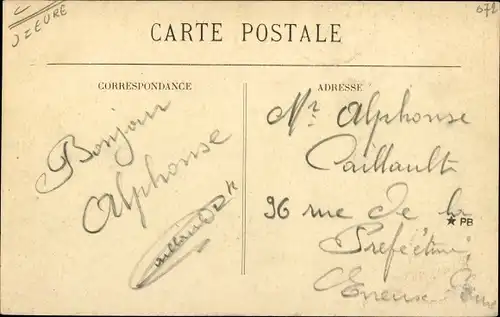 YZEURE
671
CARTE POSTALE
CORRESPONDANCE
ADRESSE
Bonjour
Alphonse
Mr Alphonse
Caillault
96 rue de la
PB
Préfecture
Evreux Eure